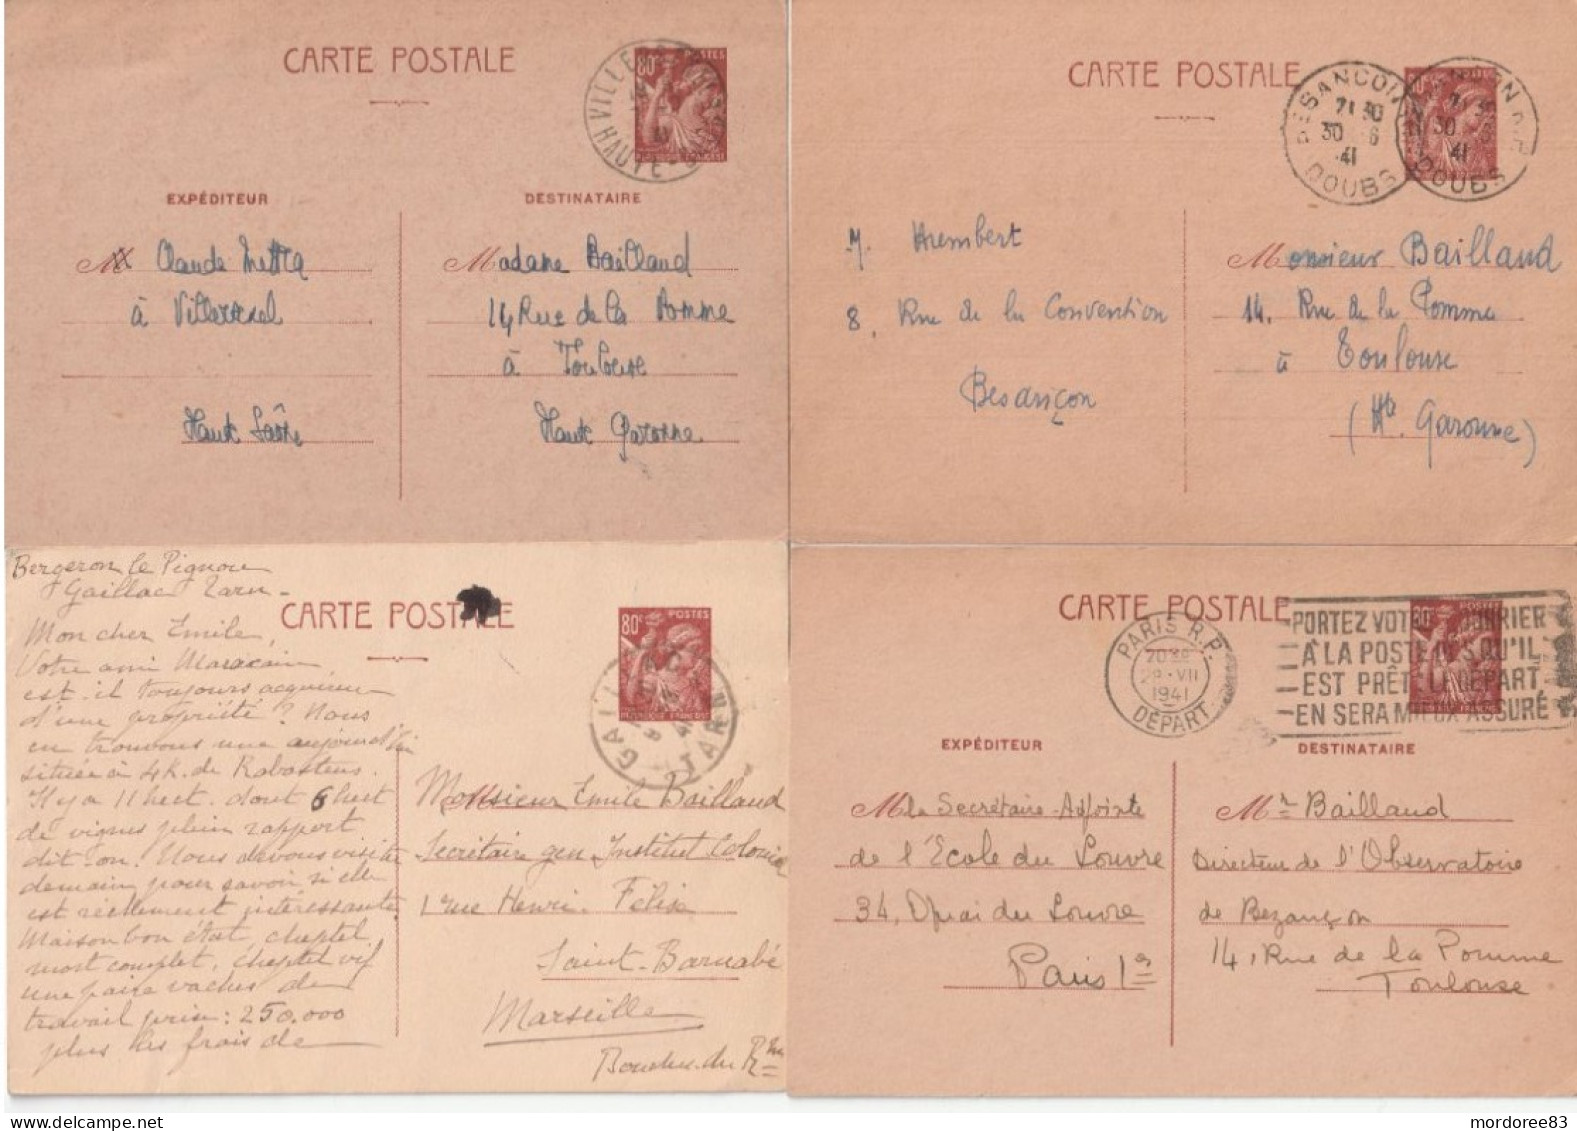 CARTE POSTALE
80c
POSTES
EXPÉDITEUR
DESTINATAIRE
M Claude Mettra
à Villersexel
Haute Saône
Madame Bailland
14 Rue de la Pomme
à Toulouse
Haute Garonne
CARTE POSTALE
BESANCON
7H30
30 6
41
DOUBS
BESANCON R.P.
7H30
30 6
41
DOUBS
M. Humbert
8, Rue de la Convention
Besançon
Monsieur Bailland
14, Rue de la Pomme
à Toulouse
(Hte Garonne)
Bergeron le Pignou
Gaillac Tarn -
Mon cher Emile,
Votre ami Maracain
est-il toujours acquéreur
d'une propriété? Nous
en trouvons une aujourd'hui
située à 4 k. de Rabastens.
Il y a 11 hect. dont 6 hect
de vignes plein rapport
dit-on. Nous devons visiter
demain pour savoir si elle
est réellement intéressante
Maison bon état, cheptel
mort complet, cheptel vif
une paire vaches de
travail prix : 250.000
plus les frais de
CARTE POSTALE
80c
POSTES
GAILLAC
TARN
Monsieur Emile Bailland
Secrétaire gen Institut Colonial
1 rue Henri-Félix
Saint-Barnabé
Marseille
Bouches-du-Rhne
CARTE POSTALE
PARIS R.P.
20H
29 · VII
1941
DÉPART
PORTEZ VOTRE COURRIER
A LA POSTE DES QU'IL
EST PRÊT. LE DÉPART
EN SERA MIEUX ASSURÉ
EXPÉDITEUR
DESTINATAIRE
M la Secrétaire-Adjointe
de l'École du Louvre
34, Quai du Louvre
Paris 1er
Mr Bailland
Directeur de l'Observatoire
de Bezançon
14, Rue de la Pomme
Toulouse
www.delcampe.net
mordoree83